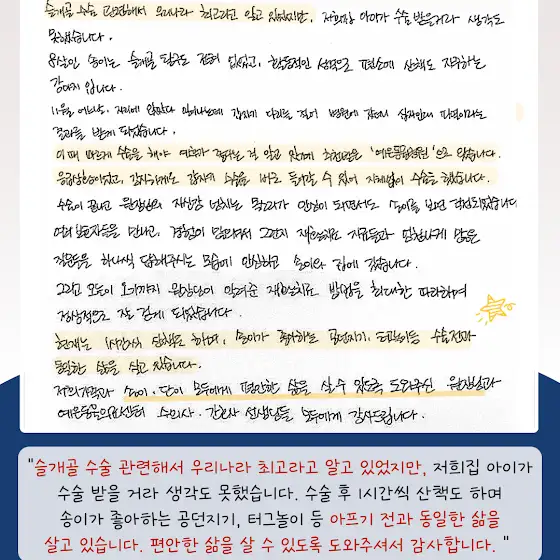 슬개골 수술 관련해서 우리나라 최고라고 알고 있었지만, 저희집 아이가 수술 받을거라 생각도
못했습니다.
8살인 송이는 슬개골 탈구도 전혀 없었고, 활동적인 성격으로 평소에 산책도 자주하는
강아지 입니다.
11월 어느날, 자리에 앉았다 일어나는데 갑자기 다리를 절어 병원에 갔더니 십자인대 파열이라는
결과를 받게 되었습니다.
이때 빠르게 수술을 해야 예후가 좋다는 걸 알고 있기에 최선택은 '예은동물병원'으로 갔습니다.
응급상황이었고, 감사하게도 갑자기 수술을 바로 들어갈 수 있어 지체없이 수술을 했습니다.
수술이 끝나고 원장님의 자신감 넘치는 목소리가 안심이 되면서도 송이를 보면 걱정되었습니다
여러 보호자들을 만나고, 경험이 많아서 그런지 재활치료 자료들과 엄청나게 많은
질문들을 하나씩 답해주시는 모습에 안심하고 송이와 집에 갔습니다.
그리고 오늘이 오기까지 원장님이 알려준 재활치료 방법을 최대한 따라하며
정상적으로 잘 걷게 되었습니다.
현재는 1시간씩 산책도 하며, 송이가 좋아하는 공던지기, 터그놀이등 수술전과
동일한 삶을 살고 있습니다.
저희가족과 송이, 단이 모두에게 편안한 삶을 살 수 있도록 도와주신 원장님과
예은동물의료센터 수의사, 간호사 선생님들 모두에게 감사드립니다.
"슬개골 수술 관련해서 우리나라 최고라고 알고 있었지만, 저희집 아이가
수술 받을 거라 생각도 못했습니다. 수술 후 1시간씩 산책도 하며
송이가 좋아하는 공던지기, 터그놀이 등 아프기 전과 동일한 삶을
살고 있습니다. 편안한 삶을 살 수 있도록 도와주셔서 감사합니다. "